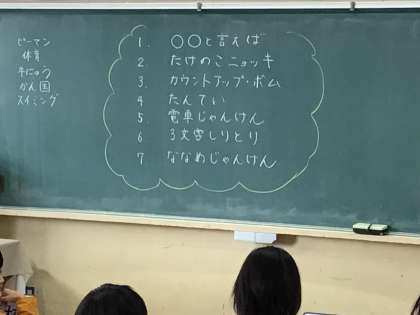 ピーマン
体育
牛にゅう
かん国
スイミング
1. ○○と言えば
2. たけのこニョッキ
3. カウントアップ・ボム
4 たんてい
5. 電車じゃんけん
6 3文字しりとり
7 ななめじゃんけん